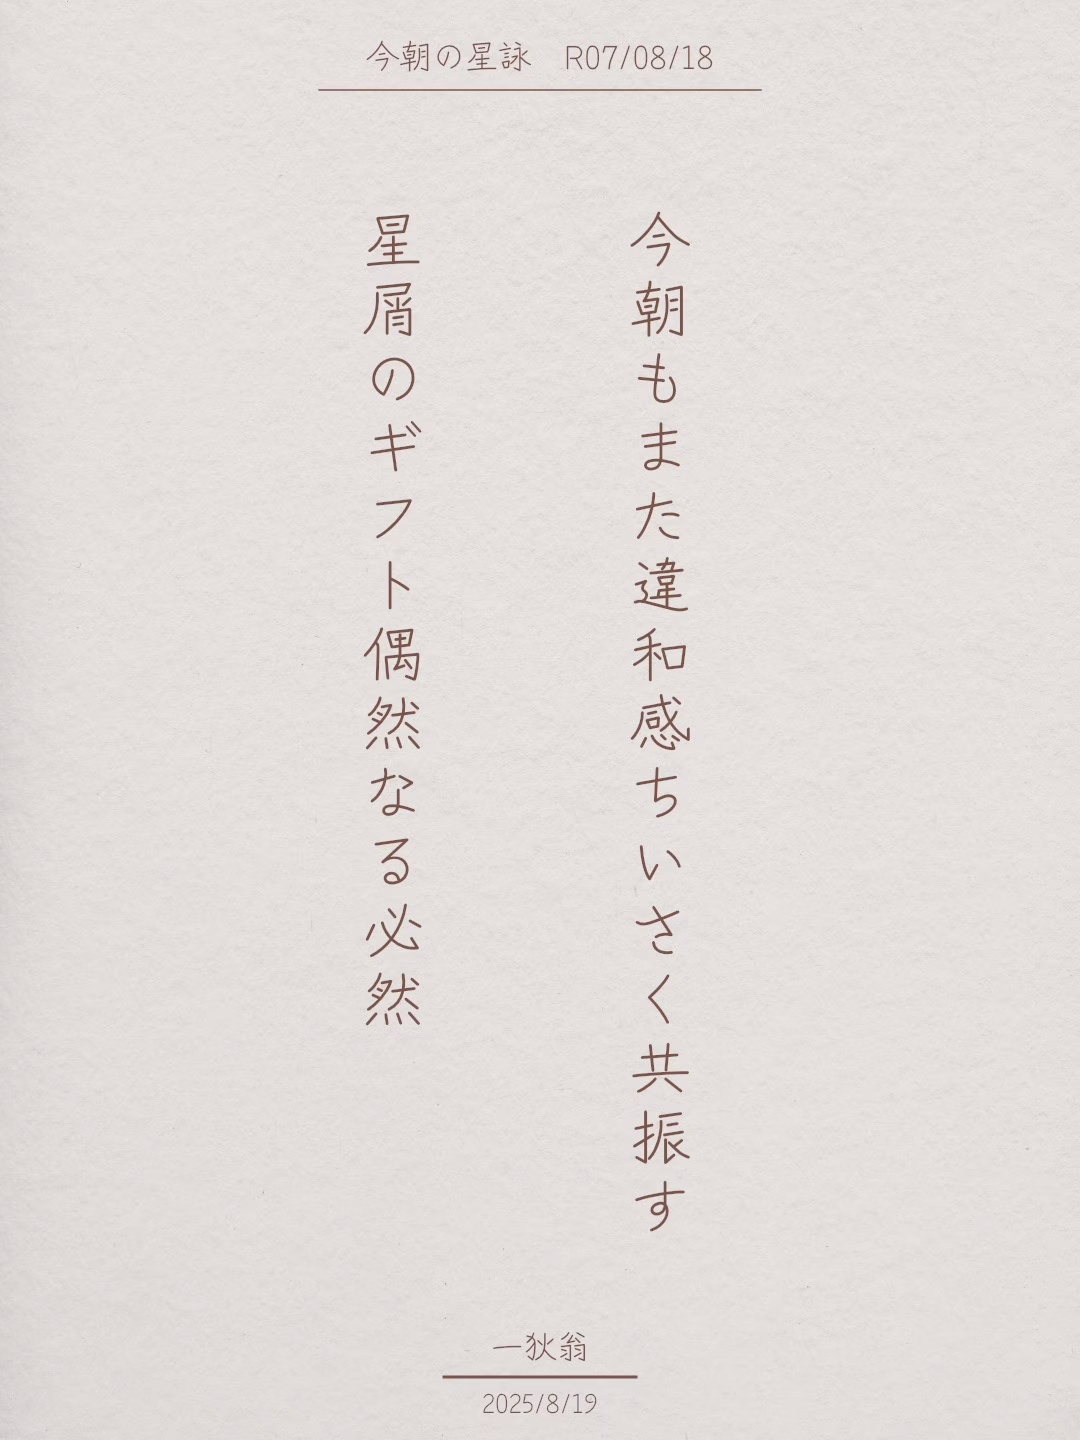 今朝の星詠　R07/08/18
今朝もまた違和感ちいさく共振す
星屑のギフト偶然なる必然
一狄翁
2025/8/19